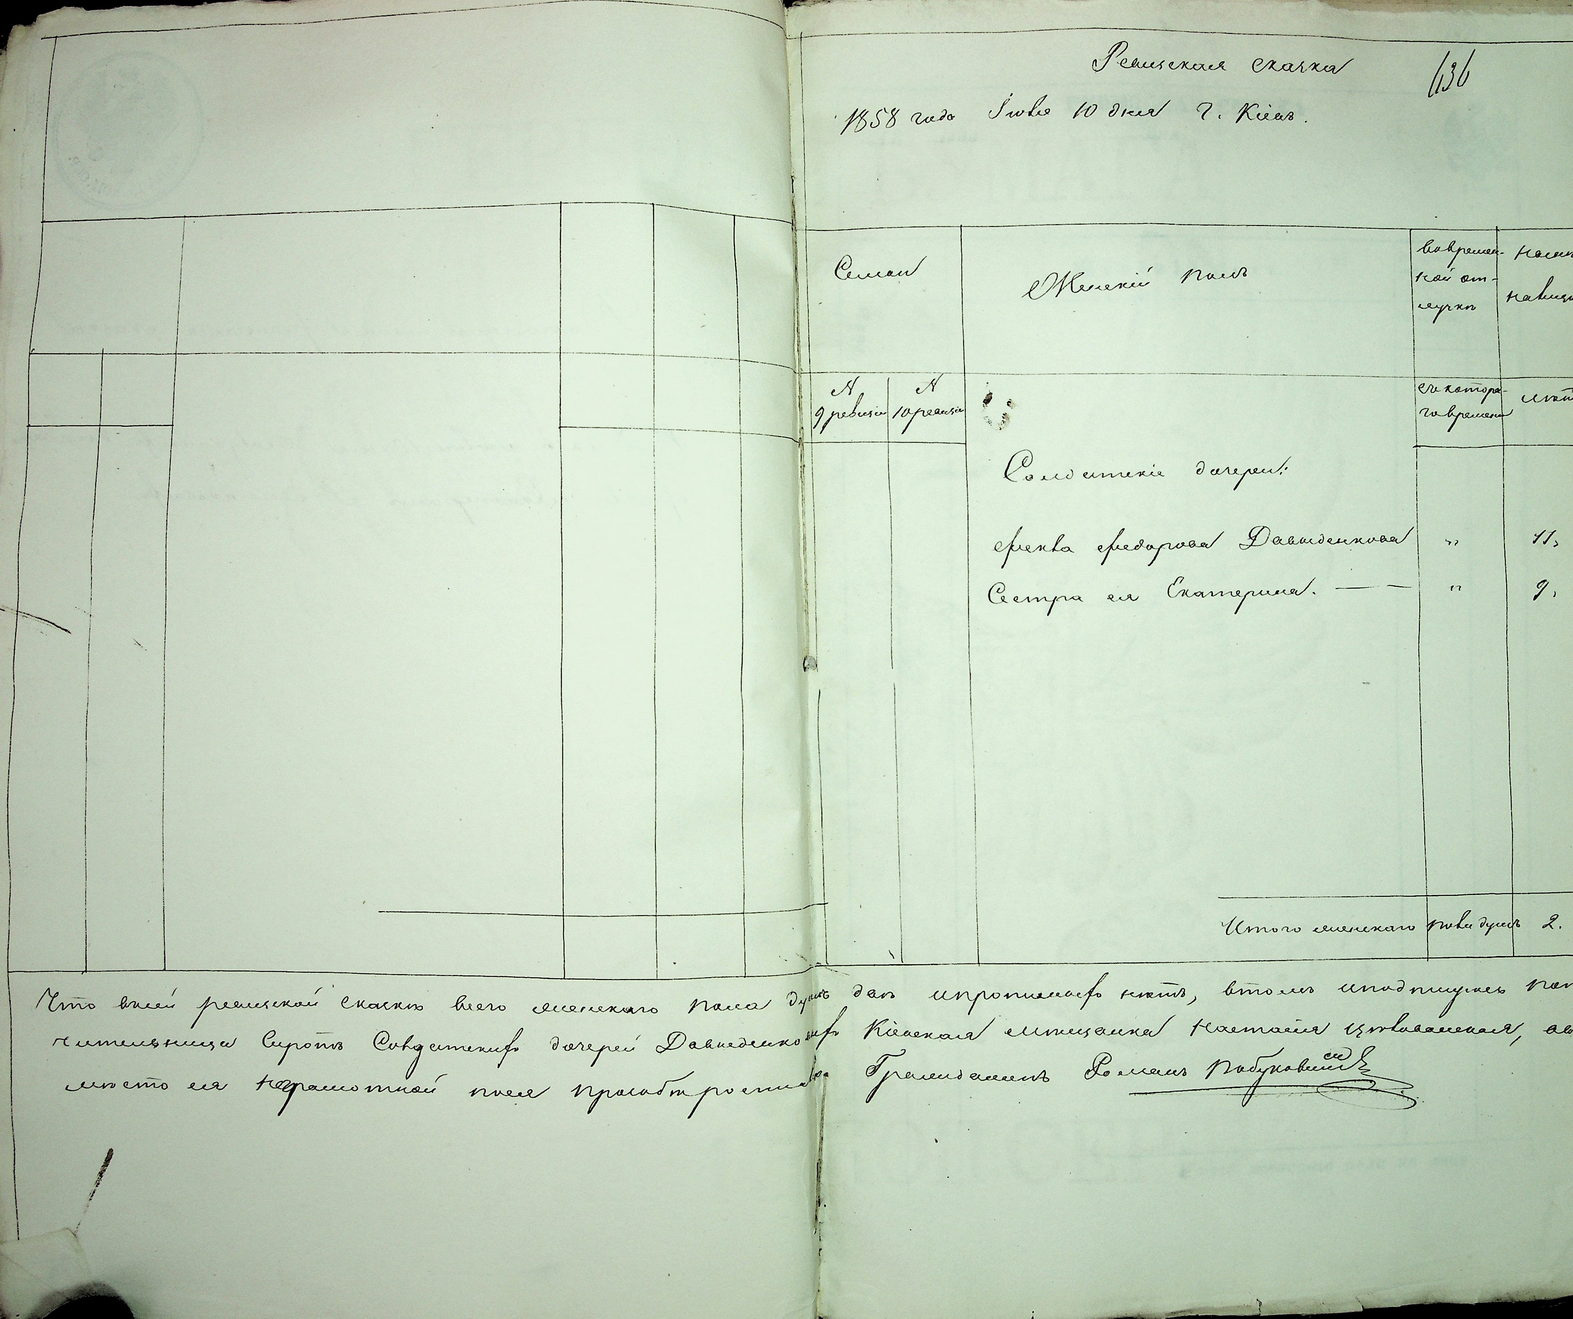 Ревизская сказка
636
1858 года Іюля 10 дня Г. Кіевъ.
Семьи
Женскій полъ
Во времен-
ной от-
лучкѣ
Налиц
N
9 ревизіи
N
10 ревизіи
съ котора-
го времени
лѣт
Солдатскіе дочери:
Фекла Федорова Давыденкова " 11,
Сестра ея Екатерина. — — " 9,
Итого женскаго пола душъ 2.
Что в сей ревизской сказкѣ всего женскаго пола душъ двѣ и прописныхъ нѣтъ, в томъ и подпишусь поп
чительница Сиротъ Солдатскихъ дочерей Давыденковыхъ Кіевская мѣщанка Настасія
мѣсто ея неграмотной по ея прозбѣ росписался Гражданинъ Романъ